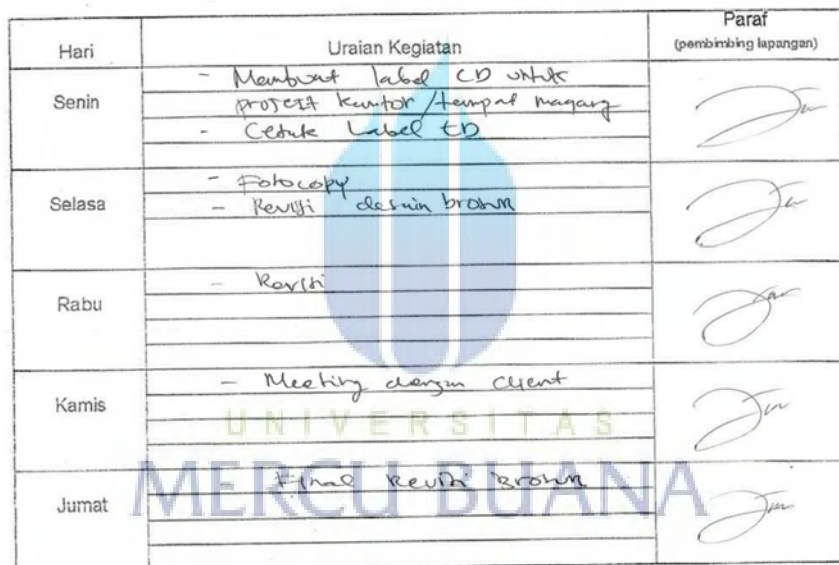 Hari
Uraian Kegiatan
Paraf
(pembimbing lapangan)
Senin
- Membuat label CD untuk
project kantor / tempat magang
- Cetak Label CD
Selasa
- Fotocopy
- Revisi desain brosur
Rabu
- Revisi
Kamis
- Meeting dengan client
UNIVERSITAS
MERCU BUANA
Jumat
Final Revisi Brosur